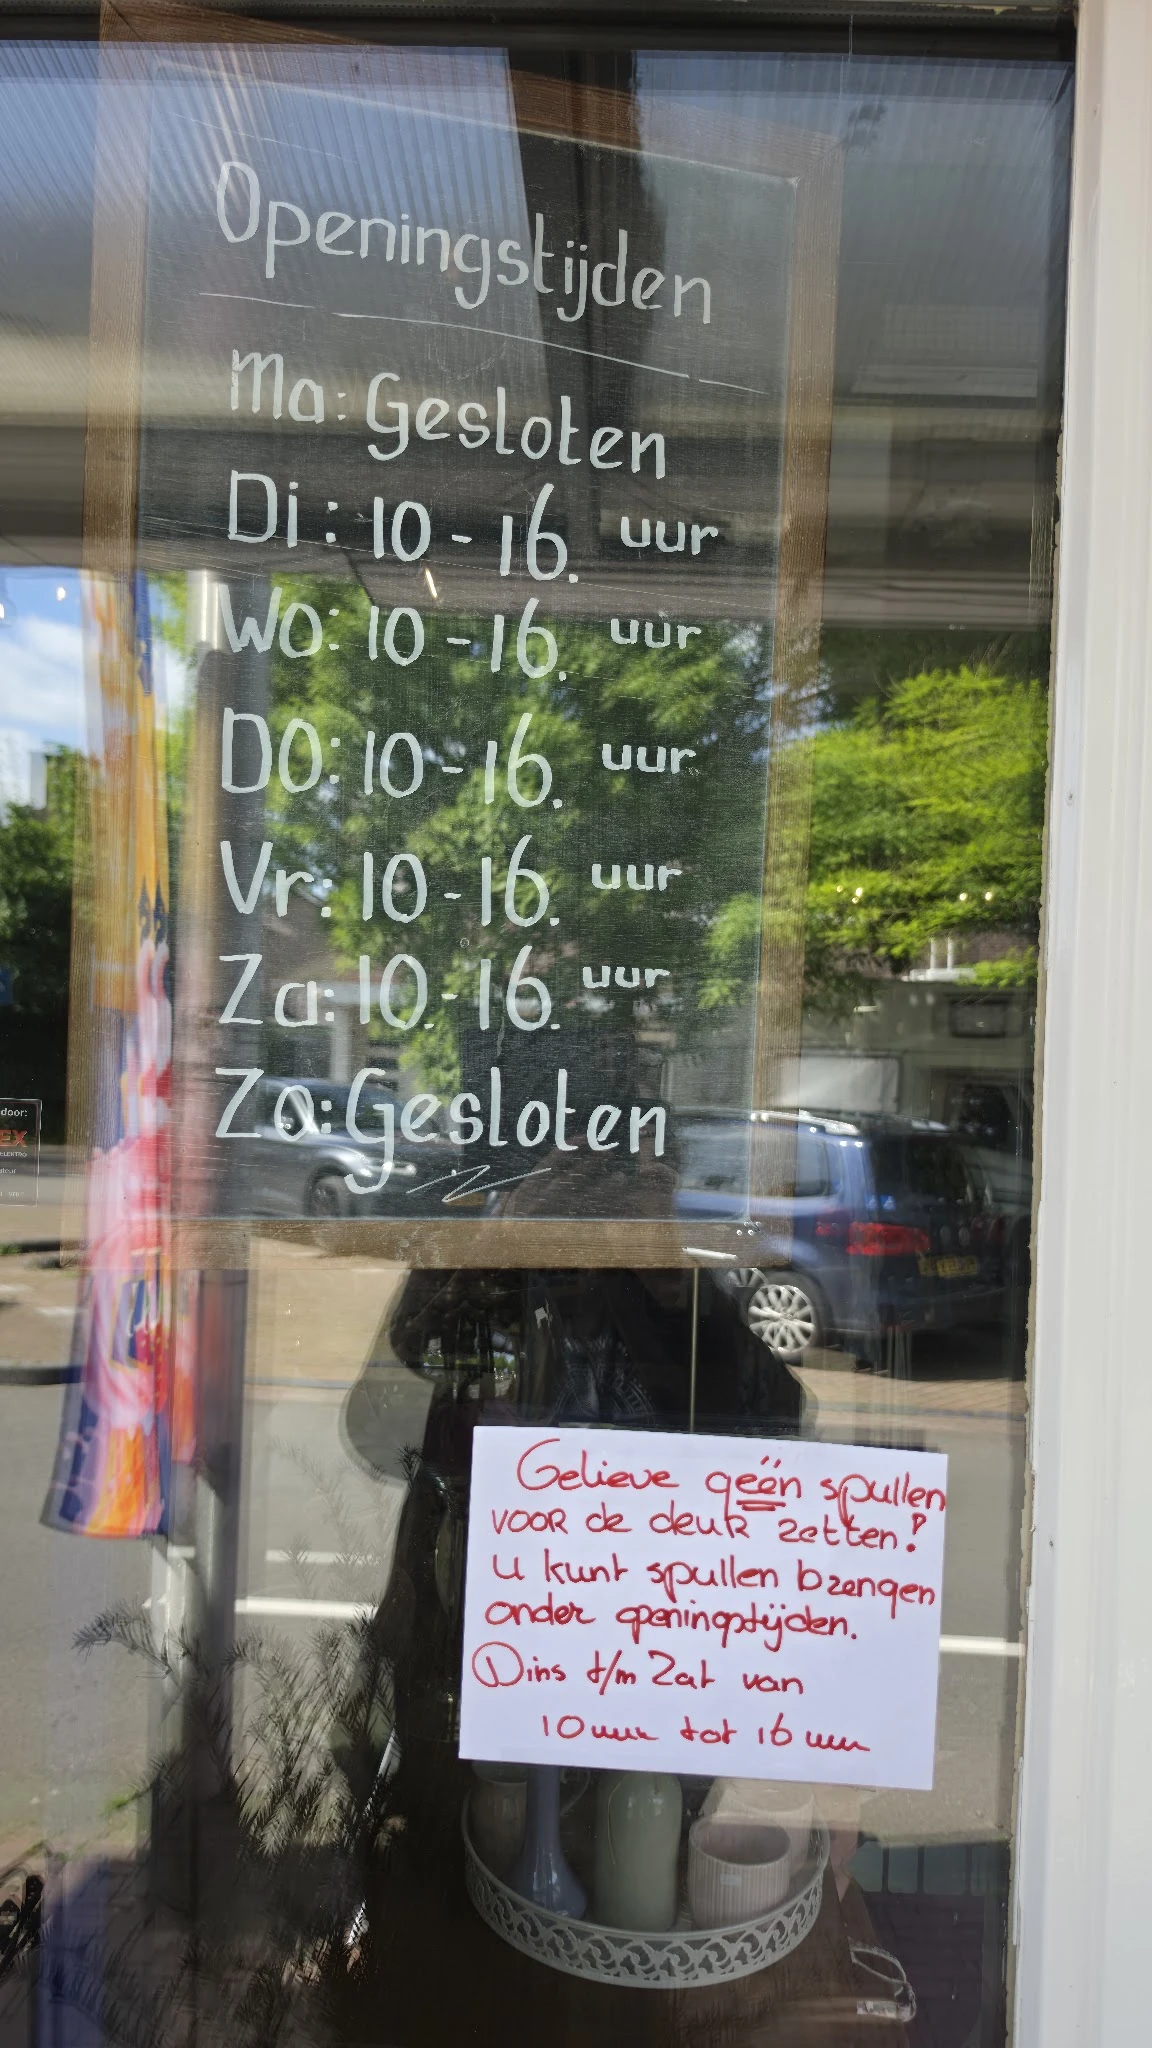 Openingstijden
Ma: Gesloten
Di: 10-16. uur
Wo: 10-16. uur
DO: 10-16. uur
Vr: 10-16. uur
Za: 10.-16. uur
Zo: Gesloten
door:
EX
ELEKTRO
Gelieve géén spullen
voor de deur zetten!
U kunt spullen brengen
onder openingstijden.
Dins t/m Zat van
10 uur tot 16 uur